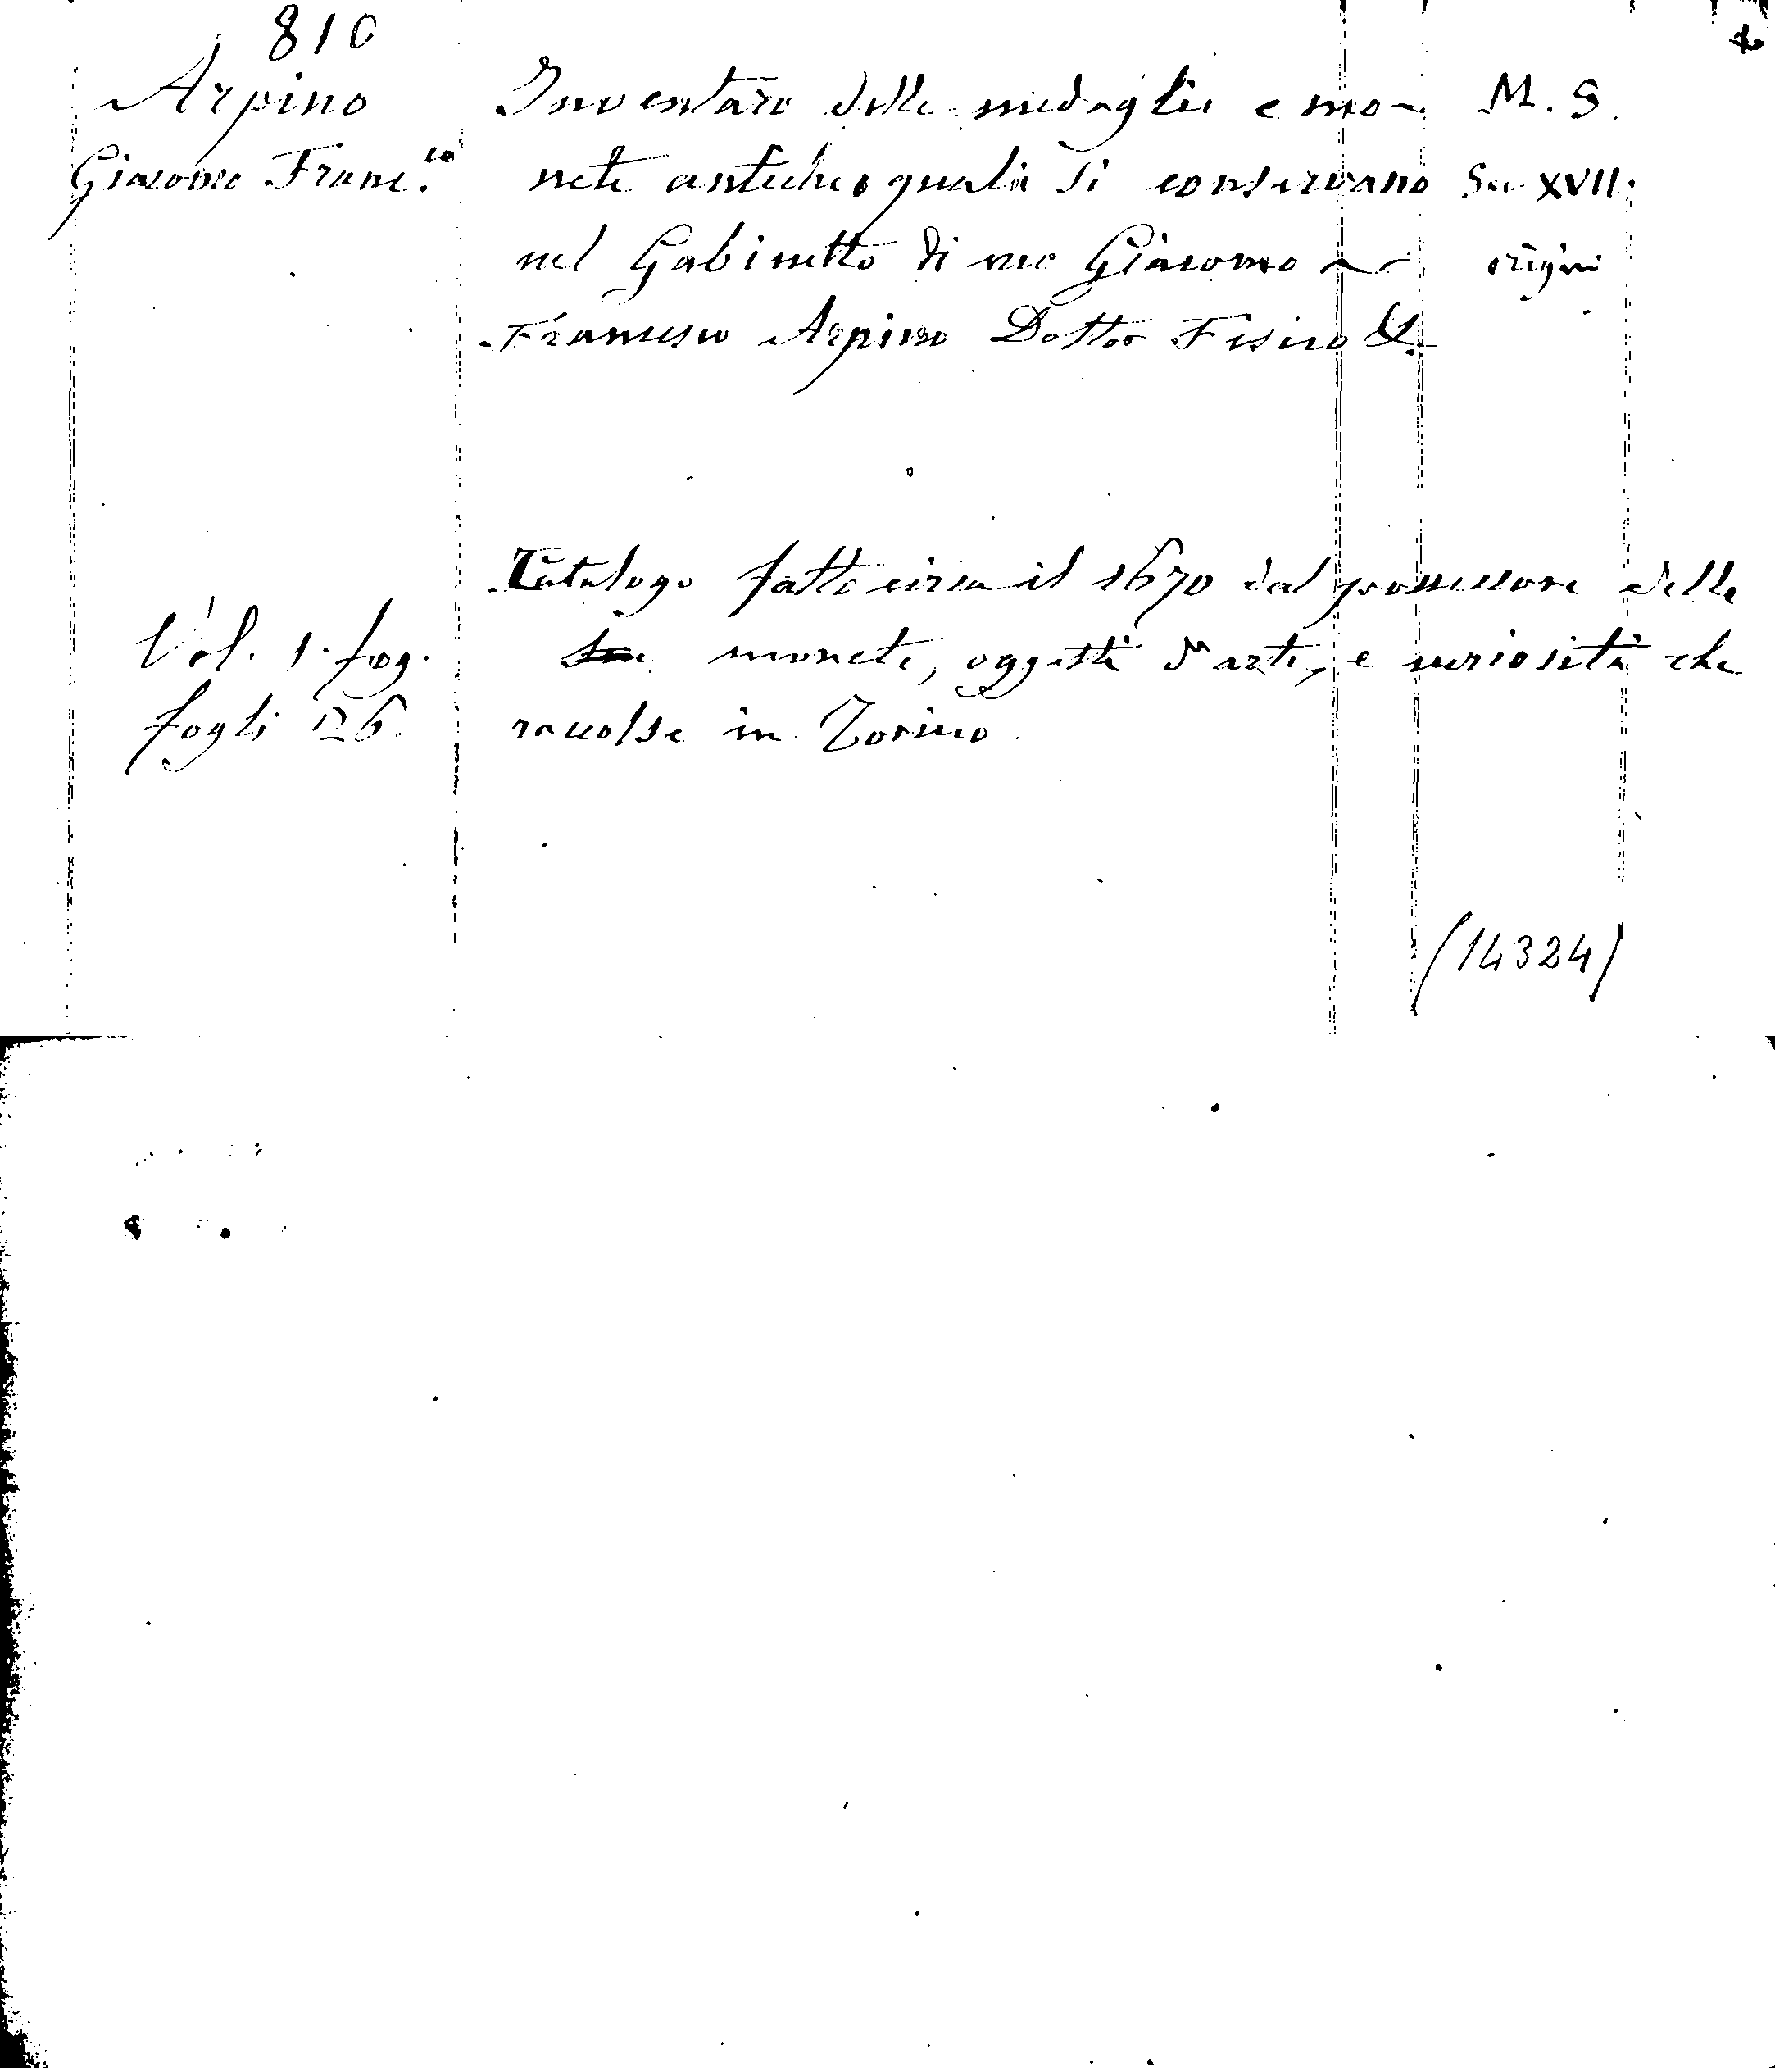 810
Arpino
Giacomo Franc.co
Inventaro delle medaglie e mo-
nete antiche quali si conservano
nel Gabinetto di me Giacomo
Francesco Arpino Dottor Fisico &.
M. S.
Sec XVII.
origin
Vol. 1. fog.
fogli 126.
Catalogo fatto circa il 1670 dal possessore delle
monete, oggetti d'arte, e curiosità che
raccolse in Torino.
(14324)